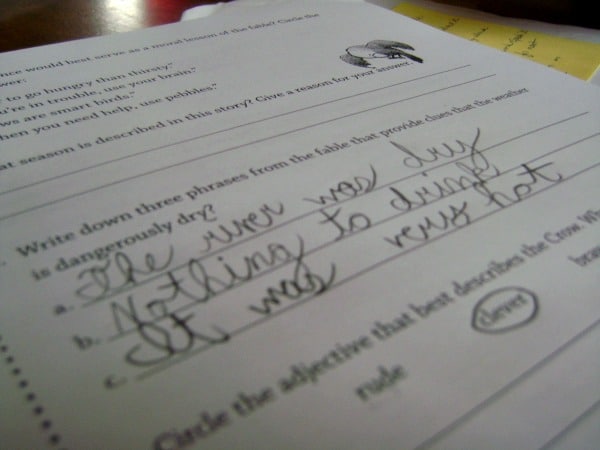 would best serve as a moral lesson of the fable? Circle the
to go hungry than thirsty."
in trouble, use your brain."
are smart birds."
you need help, use pebbles."
season is described in this story? Give a reason for your answer.
Write down three phrases from the fable that provide clues that the weather
is dangerously dry?
a. The river was dry
b. Nothing to drink
c. It was very hot
Circle the adjective that best describes the Crow.
rude clever